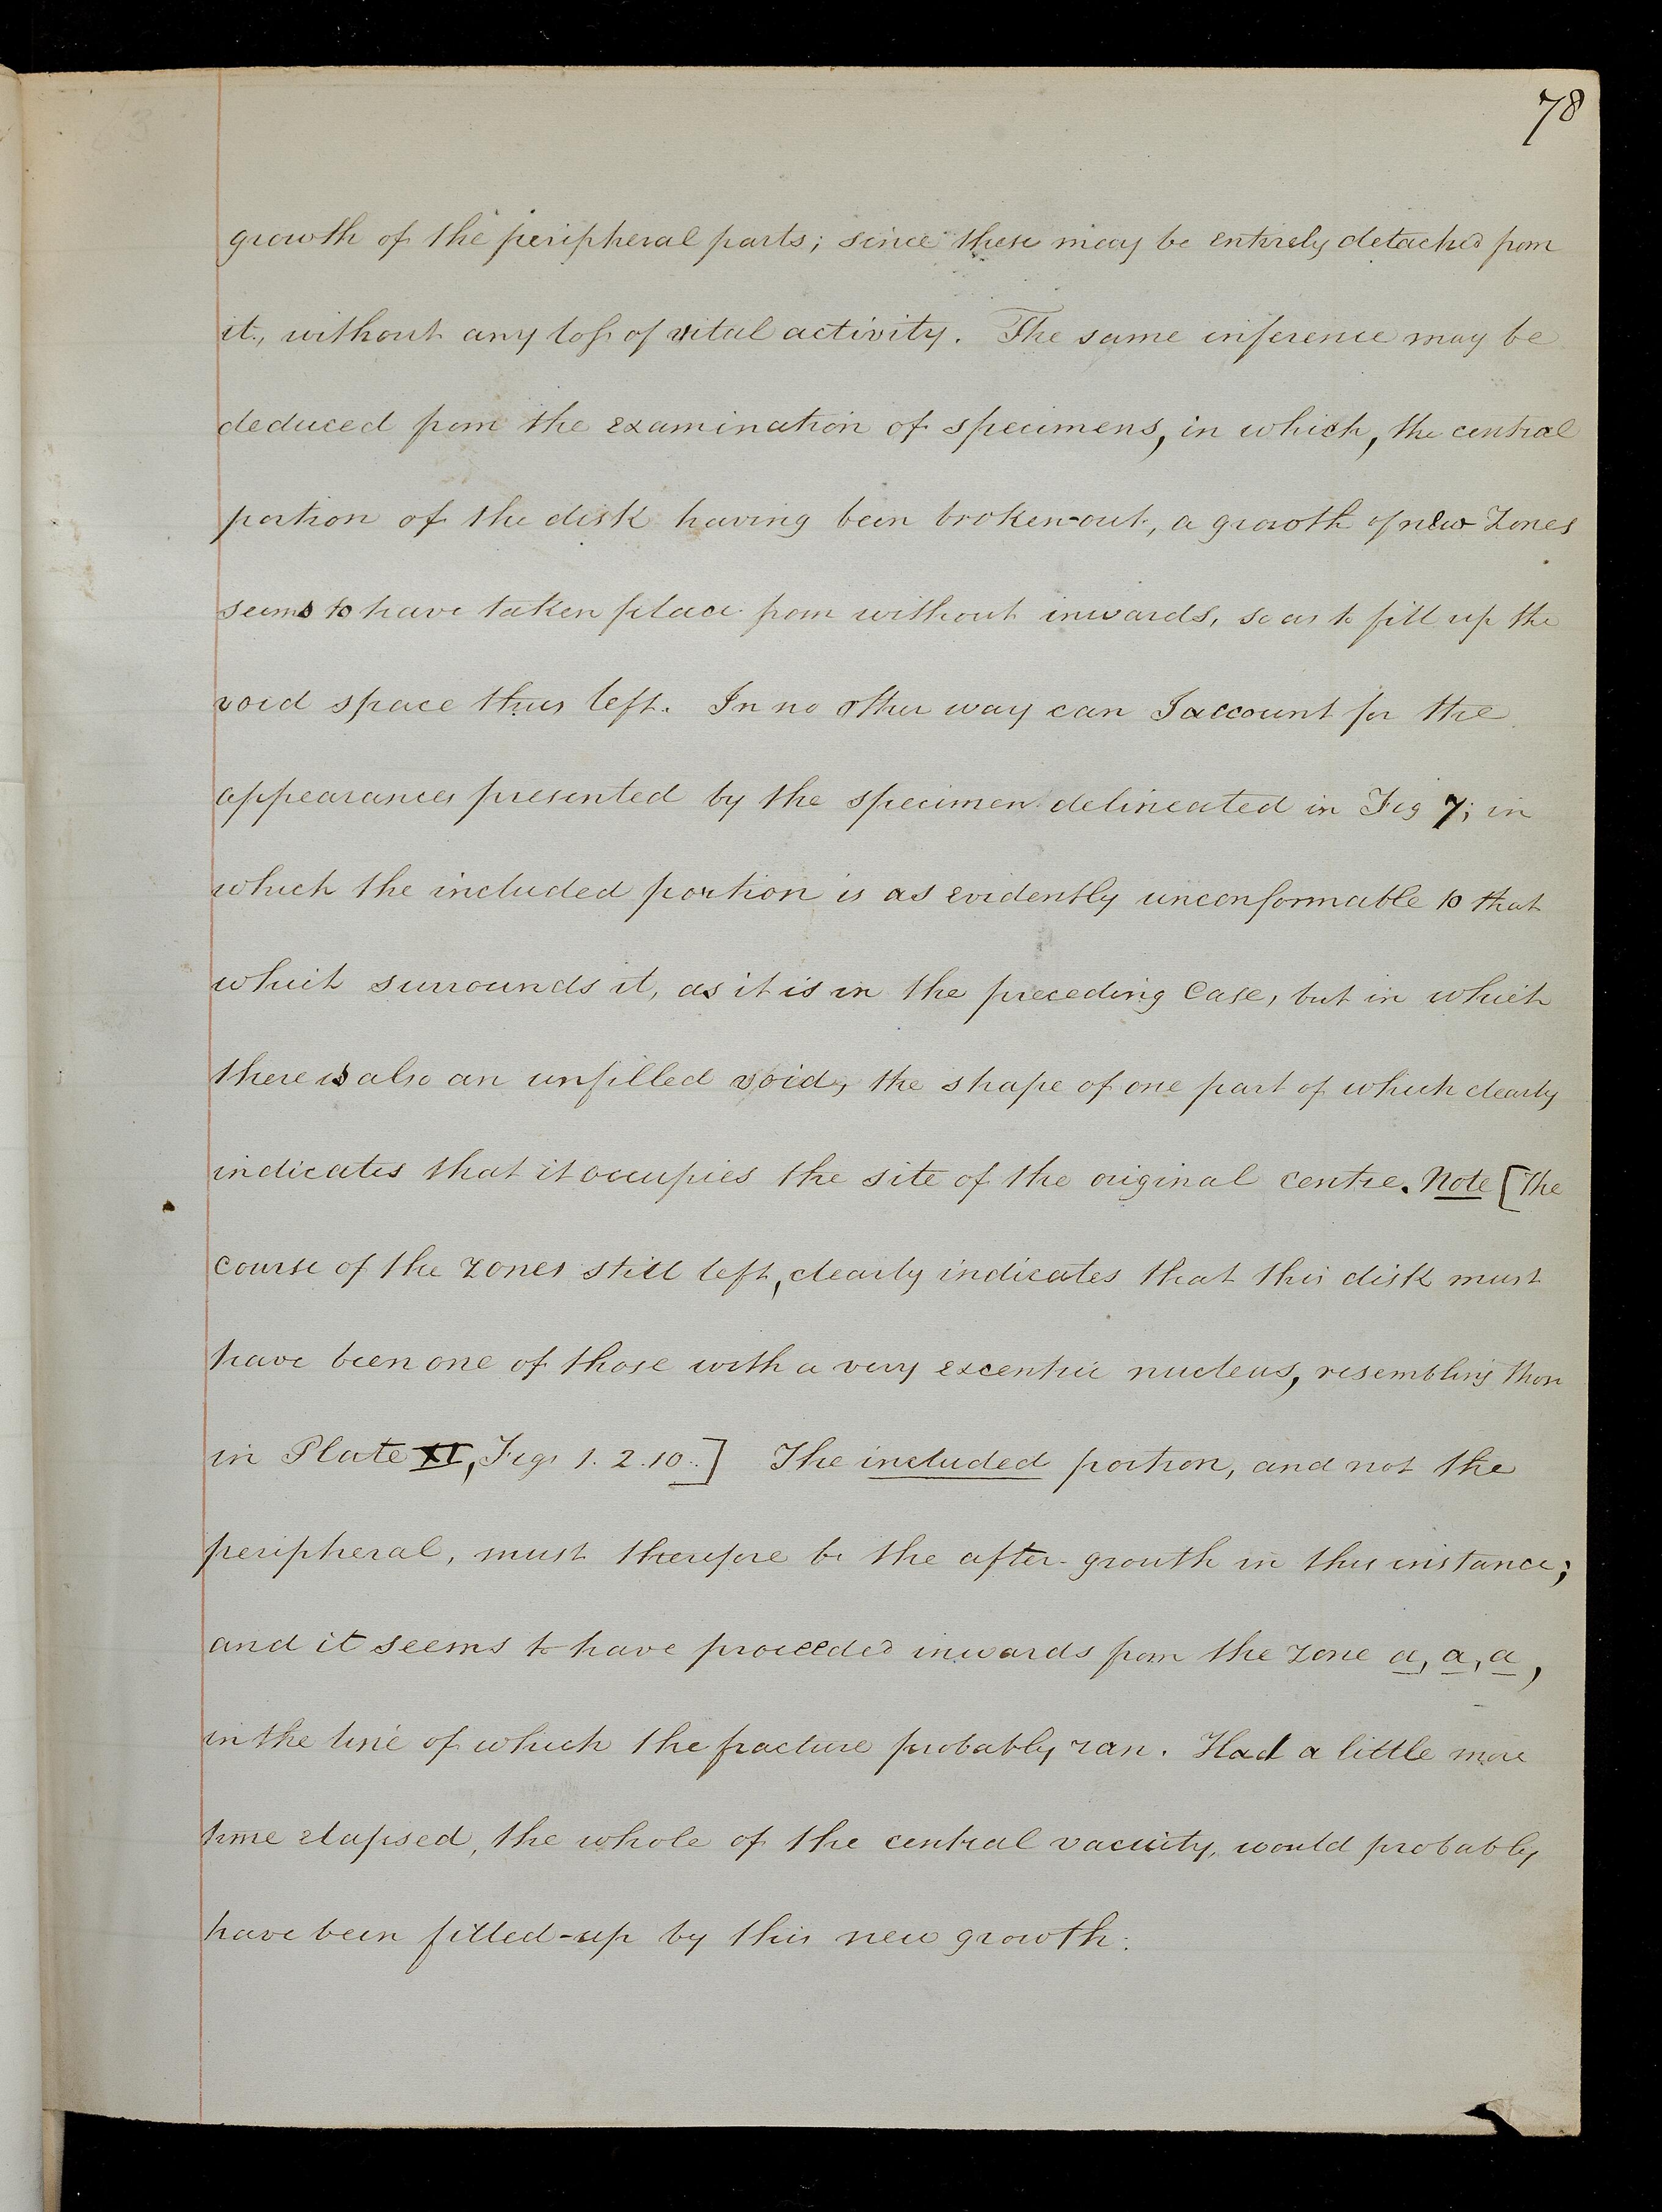 78
growth of the peripheral parts; since these may be entirely detached from
it, without any loss of vital activity. The same inference may be
deduced from the examination of specimens, in which, the central
portion of the disk having been broken-out, a growth of new zones
seems to have taken place from without inwards, so as to fill up the
void space thus left. In no other way can I account for the
appearances presented by the specimen delineated in Fig 7; in
which the included portion is as evidently unconformable to that
which surrounds it, as it is in the preceding case, but in which
there is also an unfilled void, the shape of one part of which clearly
indicates that it occupies the site of the original centre. Note [The
course of the zones still left, clearly indicates that this disk must
have been one of those with a very excentric nucleus, resembling those
in Plate XI, Figs 1. 2. 10.] The included portion, and not the
peripheral, must therefore be the after-growth in this instance;
and it seems to have proceeded inwards from the zone a, a, a,
in the line of which the fracture probably ran. Had a little more
time elapsed, the whole of the central vacuity, would probably
have been filled-up by this new growth.